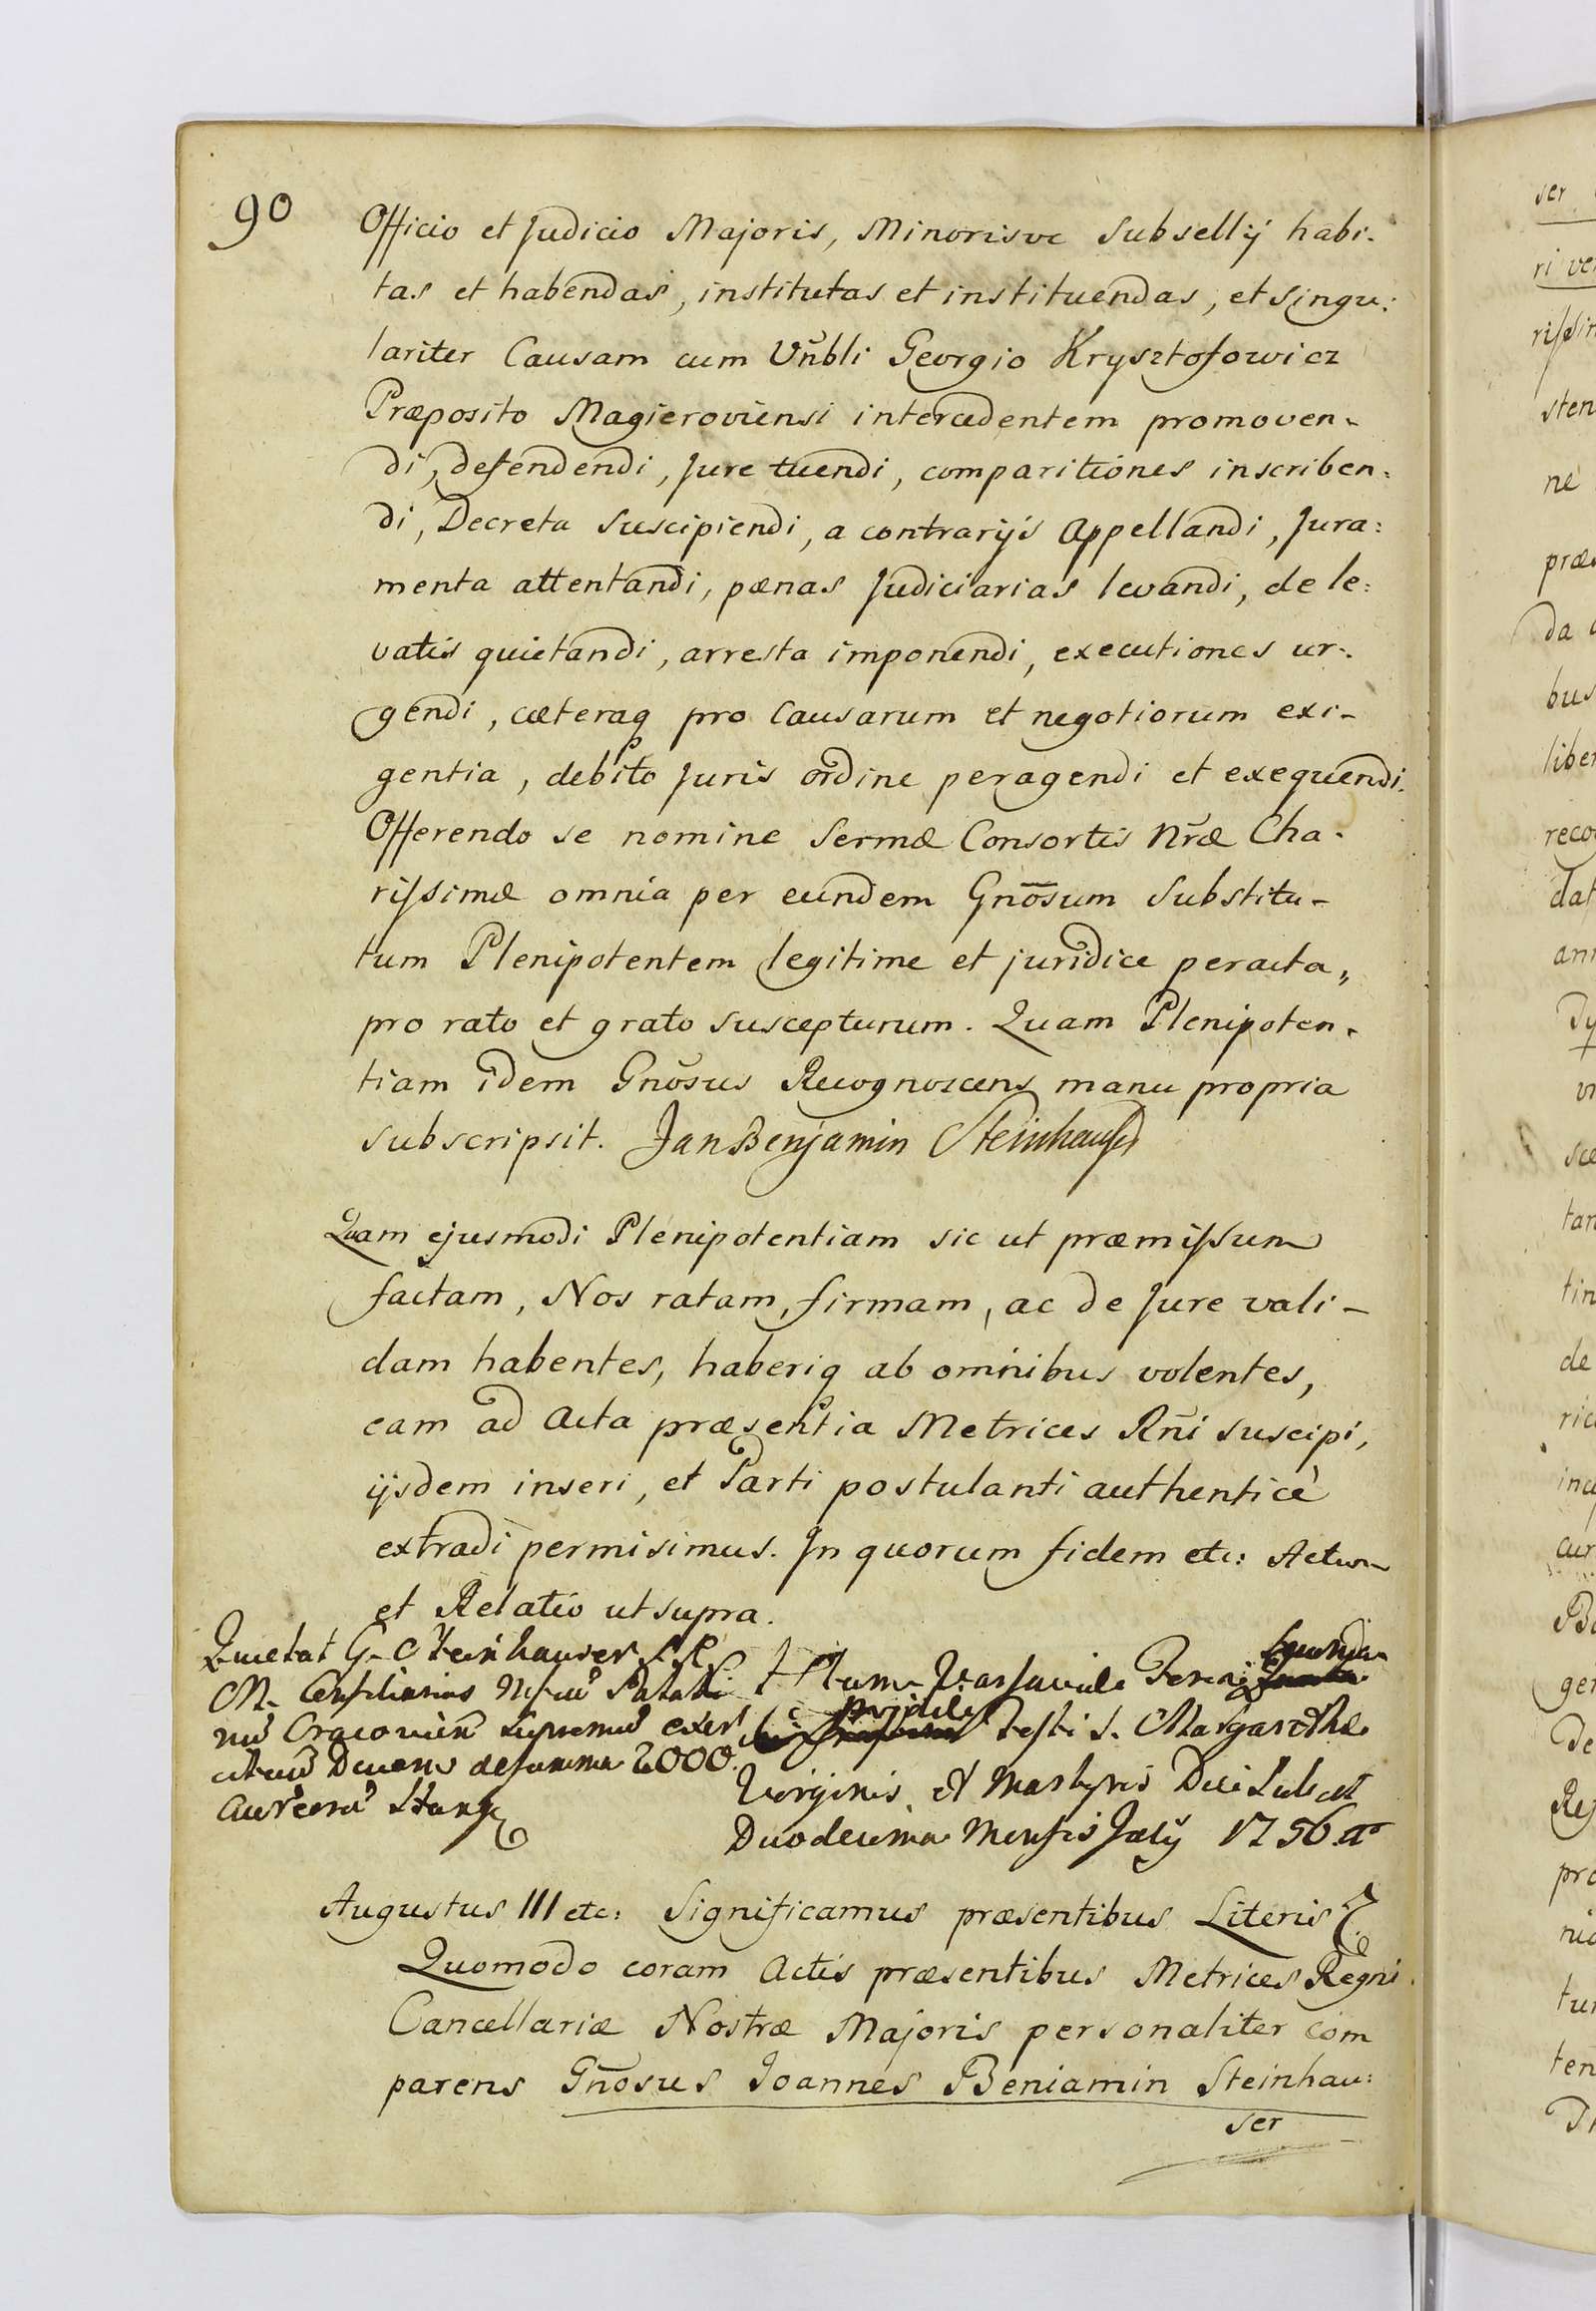 90
Officio et Judicio Majoris, Minorisve Subsellij habi-
tas et habendas, institutas et instituendas, et singu:
lariter Causam cum Vñbli Georgio Krysztofowicz
Præposito Magieroviensi intercedentem promoven-
di, defendendi, Jure tuendi, comparitiones inscriben:
di, Decreta suscipiendi, a contrarijs appellandi, Jura:
menta attentandi, pænas Judiciarias levandi, de le:
vatis quietandi, arresta imponendi, executiones ur-
gendi, cæteraq pro Causarum et negotiorum exi-
gentia, debito Juris ordine peragendi et exequendi.
Offerendo se nomine Sermæ Consortis Nr̃æ Cha-
rissimæ omnia per eundem Gnõsum Substitu-
tum Plenipotentem legitime et juridice peracta,,
pro rato et grato suscepturum. Quam Plenipoten-
tiam idem Gnõsus Recognoscens manu propria
subscripsit. Jan Benjamin Steinhauser
Quam ejusmodi Plenipotentiam sic ut præmissum
factam, Nos ratam, firmam, ac de Jure vali-
dam habentes, haberiq ab omnibus volentes,
eam ad Acta præsentia Metrices Rñi suscipi,
ijsdem inseri, et Parti postulanti authenticè
extradi permisimus. In quorum fidem etc: Actum
et Relatio ut supra.
Quietat G. Steinhauser S. R.
M. Consiliarius Palati
nũ Cracovien Supremũ exer
cituũ Ducem de summa 2000.
Aureorũ
Actum Varsaviæ Feria Secunda
pridie Festi S. Margarethæ
Virginis et Martyris Die Scilicet
Duodecima Mensis July 1756 aº
Augustus III etc: Significamus præsentibus Literis
Quomodo coram Actis præsentibus Metrices Regni
Cancellariæ Nostræ Majoris personaliter com
parens Gnõsus Joannes Beniamin Steinhau:
ser